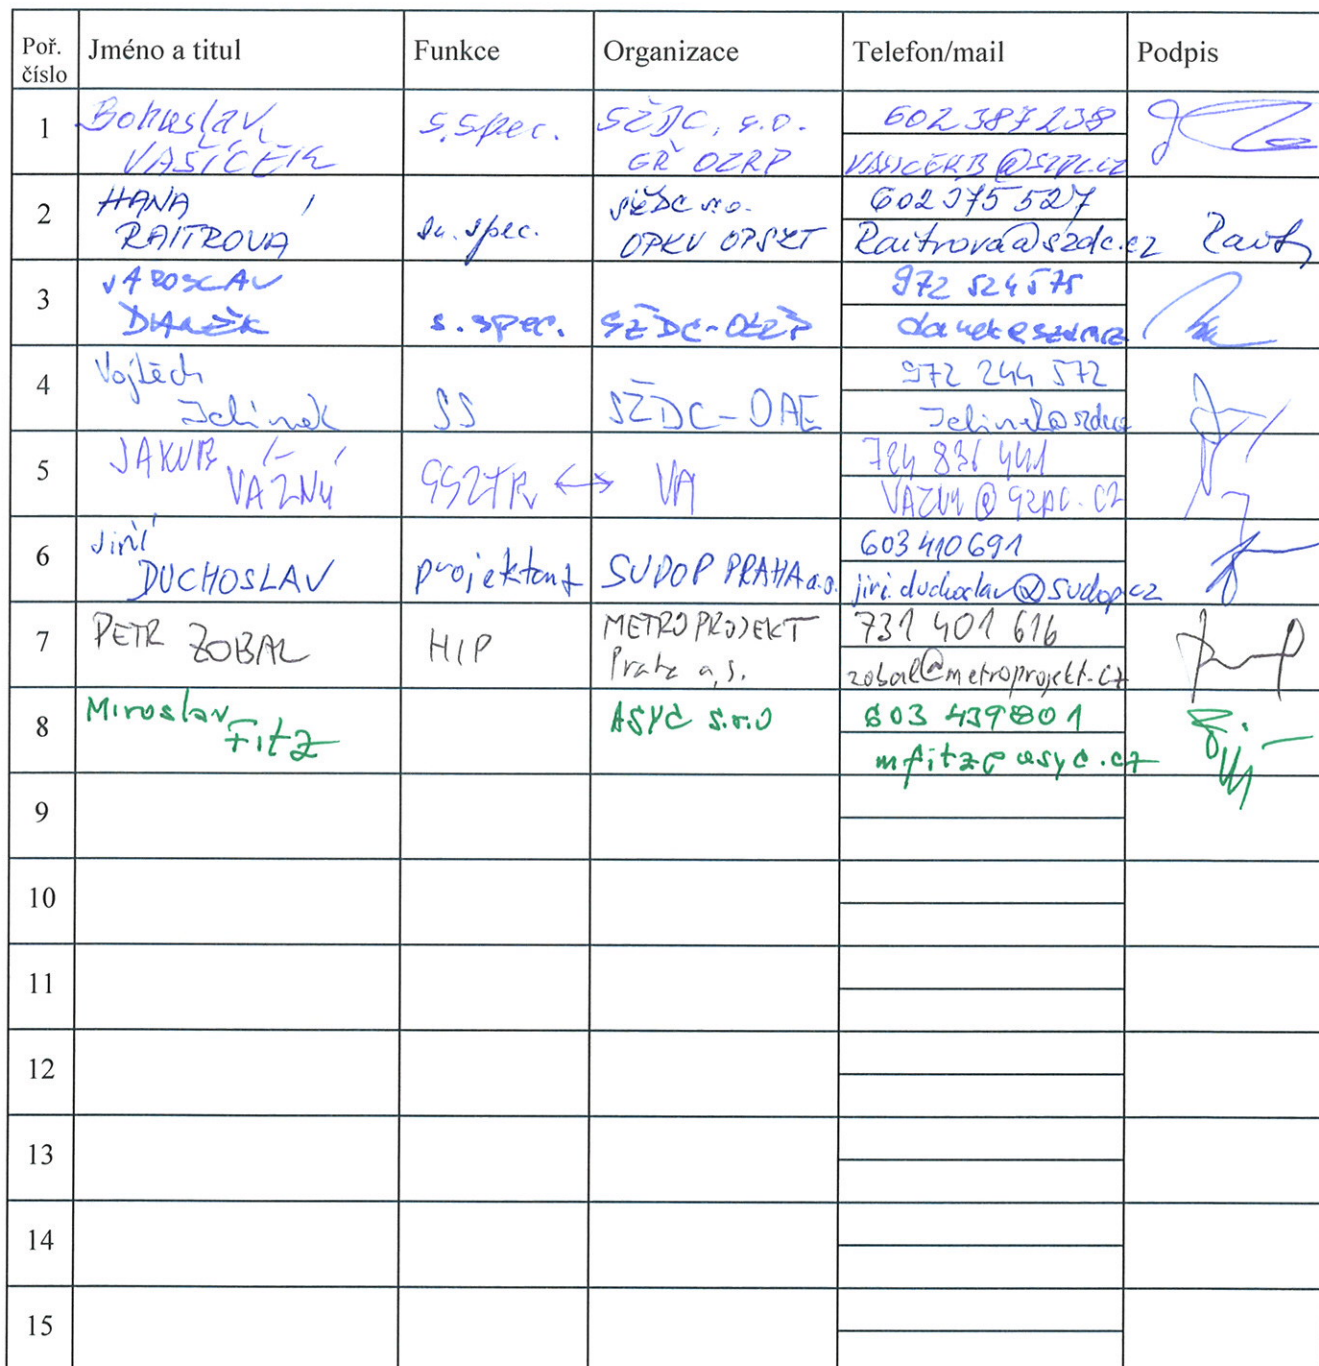 Poř. číslo Jméno a titul Funkce Organizace Telefon/mail Podpis
1 Bohuslav VAŠÍČEK s.spec. SŽDC, s.o. GŘ OZRP 602 387 238
2 HANA RAITROVÁ sn. spec. SŽDC s.o. 602 375 527 Raitrova@szdc.cz
3 JAROSLAV s. spec. SŽDC- 972 524 575
4 Vojtěch Jelínek SS SŽDC-OAE 972 244 572
5 JAKUB VÁŽNÝ VA 724 836 441
6 Jiří DUCHOSLAV projektant SUDOP PRAHA a.s. 603 410 691 jiri.duchoslav@sudop.cz
7 PETR ZOBAL HIP METROPROJEKT Praha a.s. 731 401 616 zobal@metroprojekt.cz
8 Miroslav Fitz ASYC s.r.o 603 439 801 mfitz@asyc.cz
9
10
11
12
13
14
15